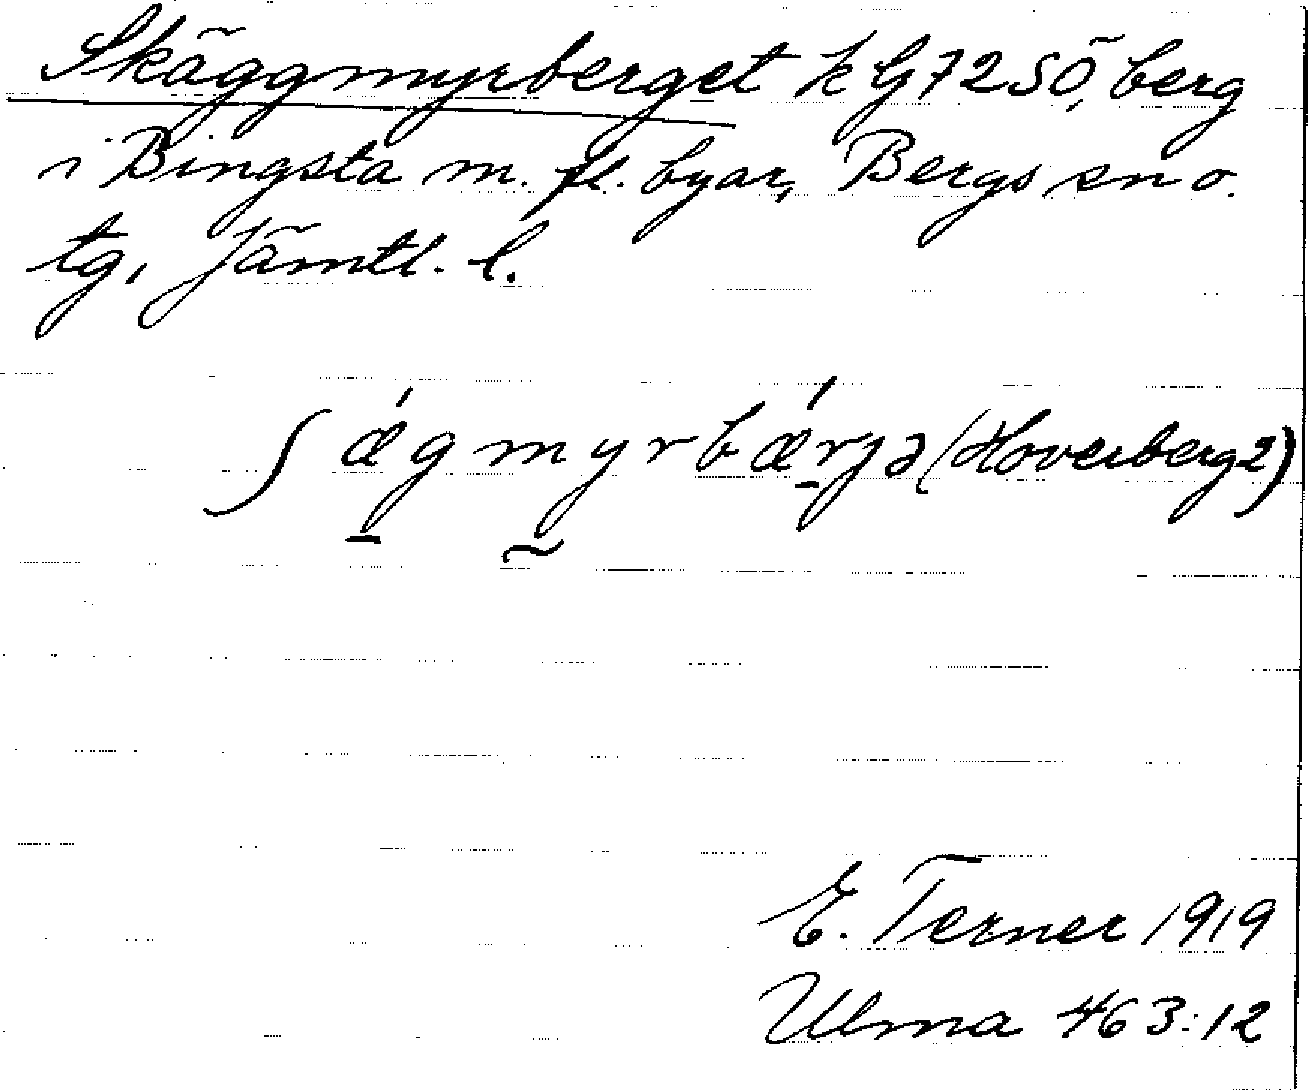 Skäggmyrberget k G7250, berg
i Bingsta m. fl. byar, Bergs sn o.
tg, Jämtl. l.
ʃǽgmyrbǽrjə (Hoverberg 2)
E. Terner 1919
Ulma 463:12